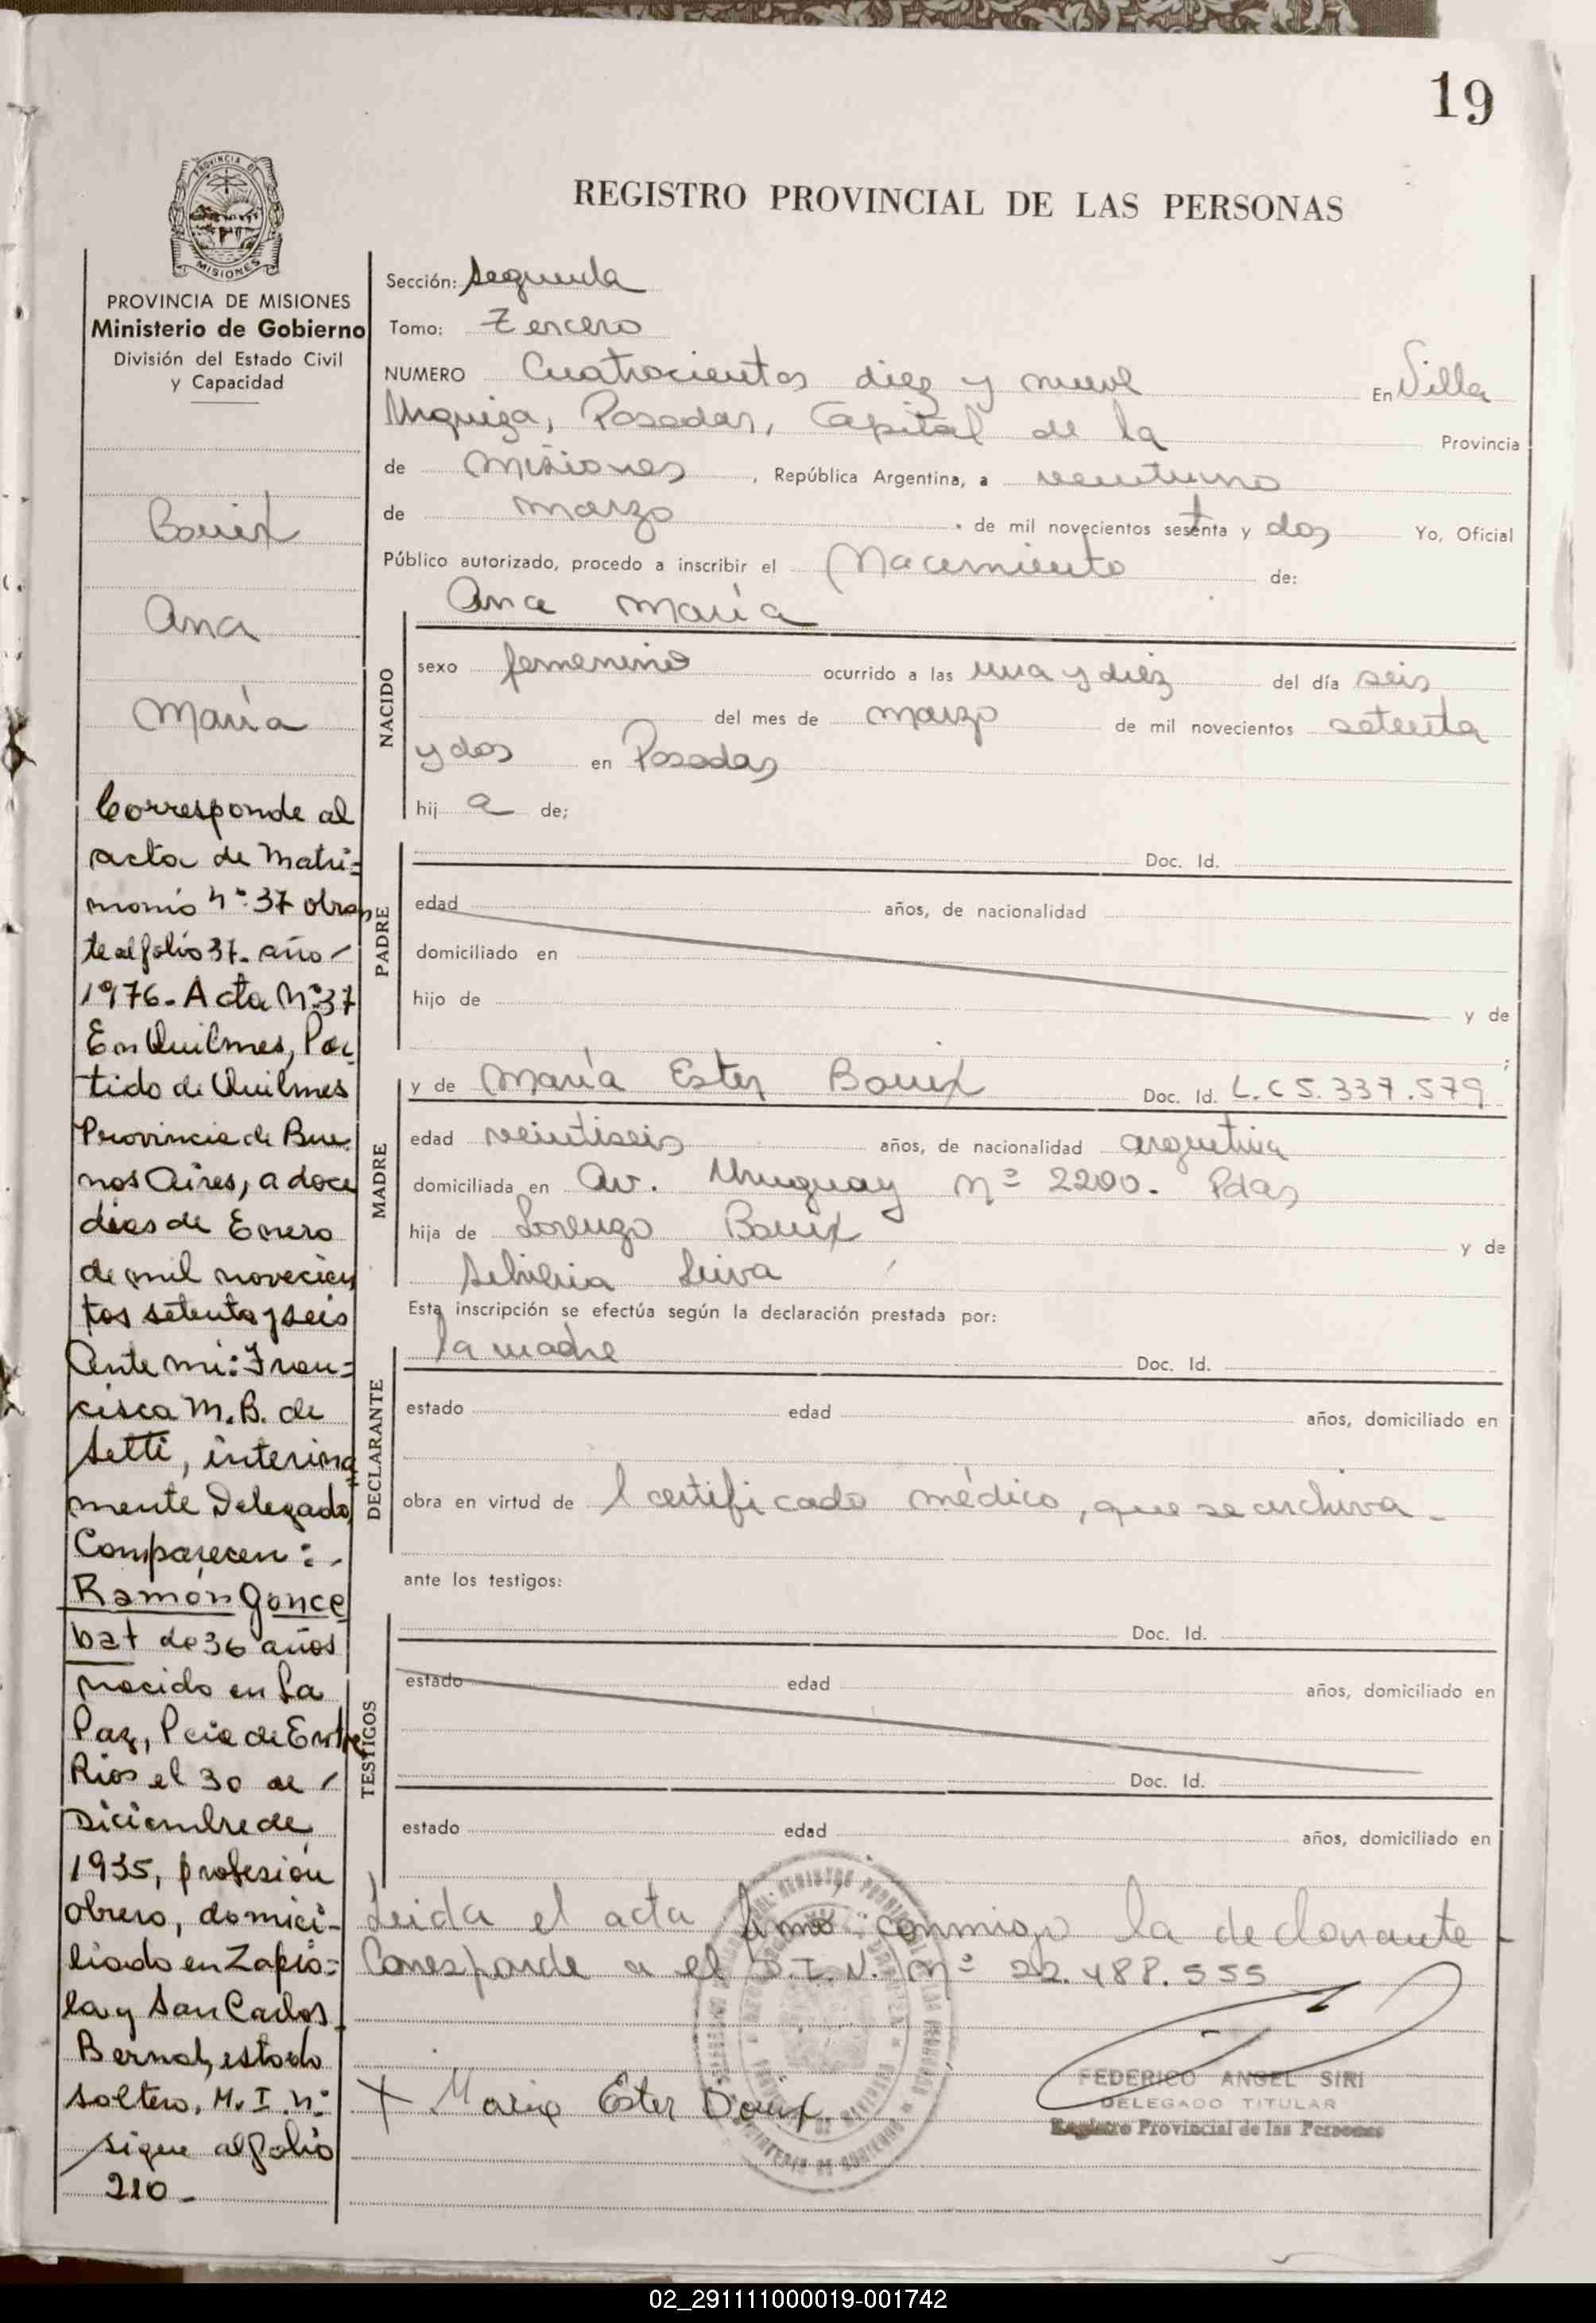 19
REGISTRO PROVINCIAL DE LAS PERSONAS
PROVINCIA DE MISIONES
Ministerio de Gobierno
División del Estado Civil
y Capacidad
Bouix
Ana
María
Corresponde al
acta de Matri=
monio nº 37 obran
te al folio 37. año
1976. Acta Nº 37
En Quilmes, Par
tido de Quilmes
Provincia de Bue
nos Aires, a doce
días de Enero
de mil novecien
tos setenta y seis
Ante mi: Fran=
cisca M. B. de
Setti, interina
mente Delegado
Comparecen:
Ramón Gonce
bat de 36 años
nacido en La
Paz, Pcia de Entre
Rios el 30 de
Diciembre de
1935, profesión
obrero, domici-
liado en Zapio=
la y San Carlos
Bernal, estado
soltero, M. I. nº
sigue al folio
210
Sección: Segunda
Tomo: Tercero
NUMERO Cuatrocientos diez y nueve En Villa
Urquiza, Posadas, Capital de la Provincia
de Misiones, República Argentina, a veintiuno
de marzo de mil novecientos setenta y dos Yo, Oficial
Público autorizado, procedo a inscribir el Nacimiento de:
Ana María
NACIDO
sexo femenino ocurrido a las una y diez del día seis
del mes de marzo de mil novecientos setenta
y dos en Posadas
hij a de;
PADRE
Doc. Id.
edad años, de nacionalidad
domiciliado en
hijo de y de
;
MADRE
y de María Ester Bouix Doc. Id. L.C 5.337.579
edad veintiseis años, de nacionalidad argentina
domiciliada en Av. Uruguay nº 2200. Pdas
hija de Lorenzo Bouix y de
Silvina Leiva
Esta inscripción se efectúa según la declaración prestada por:
DECLARANTE
la madre Doc. Id.
estado edad años, domiciliado en
obra en virtud de l certificado médico, que se archiva.
ante los testigos:
TESTIGOS
Doc. Id.
estado edad años, domiciliado en
Doc. Id.
estado edad años, domiciliado en
Leida el acta firmó conmigo la declarante
Corresponde a el D.I.N. Nº 22.488.555
Maria Ester Bouix
FEDERICO ANGEL SIRI
DELEGADO TITULAR
Registro Provincial de las Personas
02_291111000019-001742